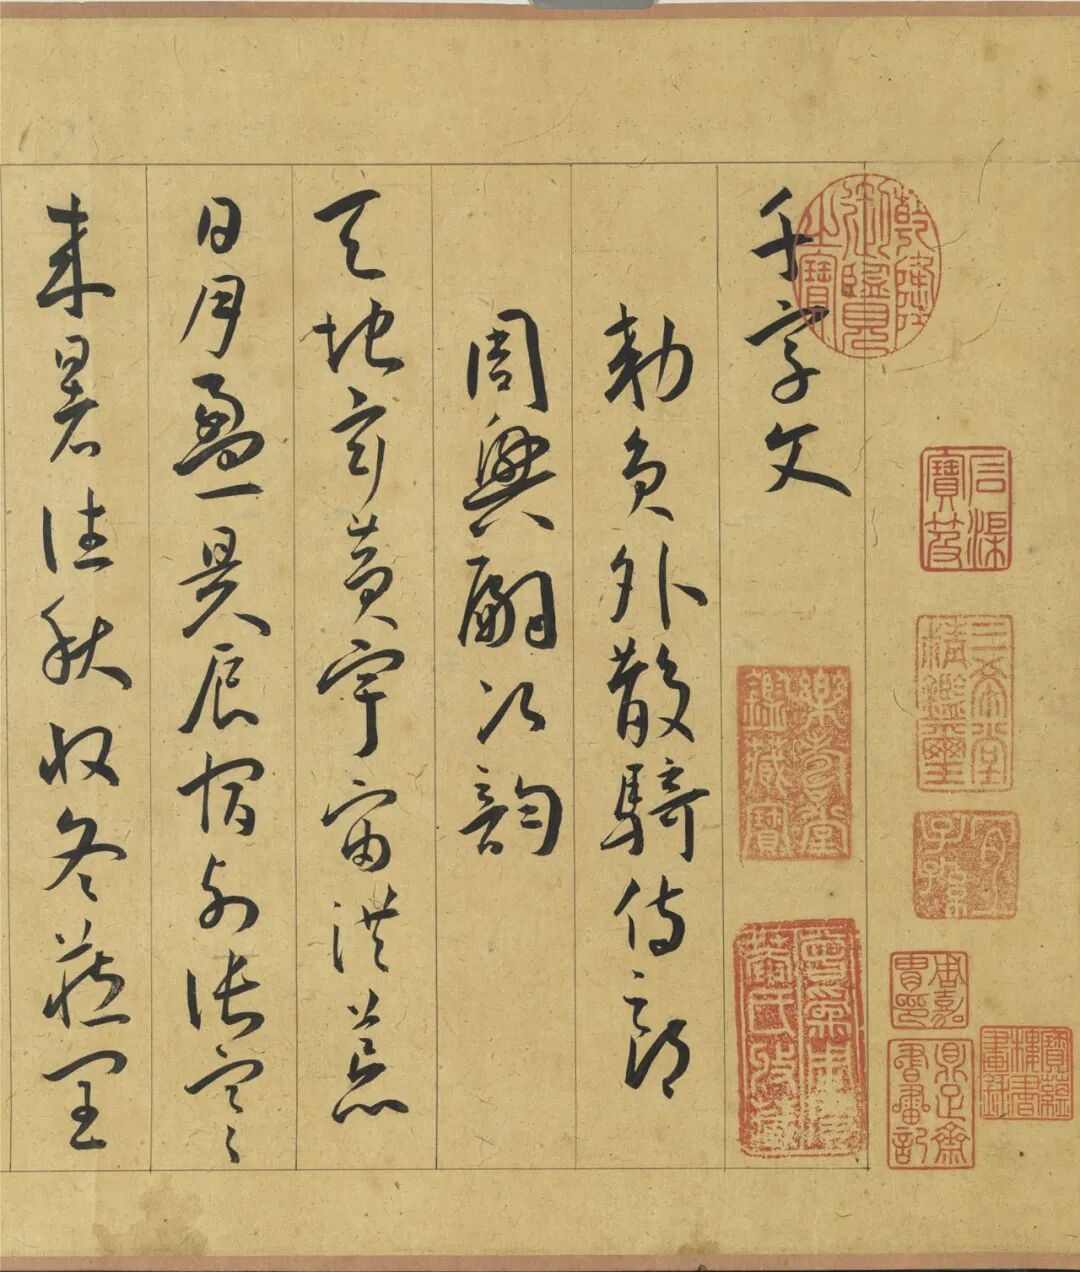 乾隆御覽之寶
石渠寶笈
三希堂精鑑璽
宜子孫
寶蘊樓書畫錄
樂壽堂鑑藏寶
千字文
勑員外散騎侍郎
周興嗣次韻
天地玄黃宇宙洪荒
日月盈昃辰宿列張寒
來暑往秋收冬藏閏